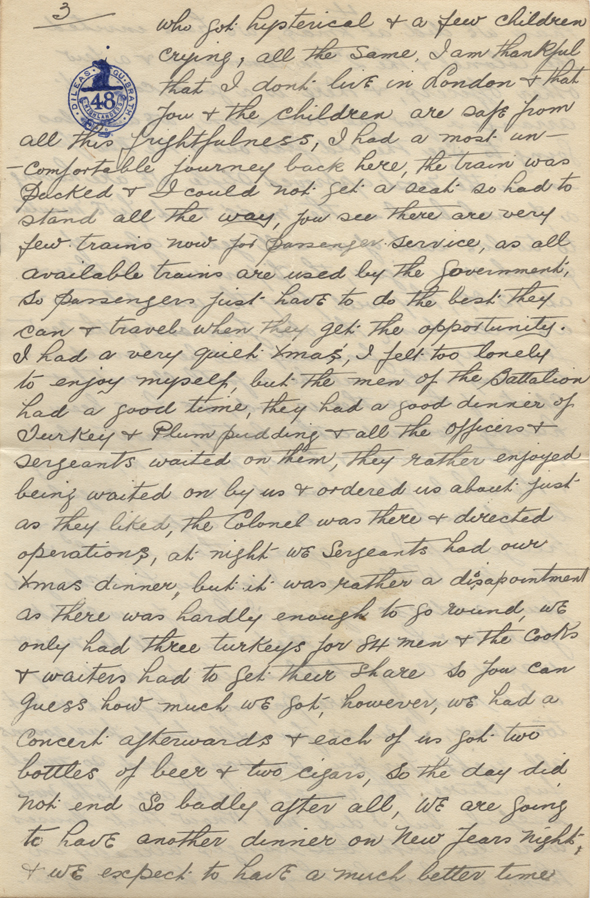 3
who got hysterical & a few children
crying, all the same, I am thankful
that I dont live in London & that
you & the children are safe from
all this frightfulness, I had a most un-
-comfortable journey back here, the train was
packed & I could not get a seat so had to
stand all the way, you see there are very
few trains now for passenger service, as all
available trains are used by the government,
so passengers just have to do the best they
can & travel when they get the opportunity.
I had a very quiet Xmas, I felt too lonely
to enjoy myself, but the men of the Battalion
had a good time, they had a good dinner of
Turkey & Plum pudding & all the officers &
sergeants waited on them, they rather enjoyed
being waited on by us & ordered us about just
as they liked, the Colonel was there & directed
operations, at night we Sergeants had our
Xmas dinner, but it was rather a disapointment
as there was hardly enough to go round, we
only had three turkeys for 84 men & the cooks
& waiters had to get their share so you can
guess how much we got, however, we had a
concert afterwards & each of us got two
bottles of beer & two cigars, so the day did
not end so badly after all, we are going
to have another dinner on New Years night,
& we expect to have a much better time
DILEAS GU BRATH
48
HIGHLANDERS